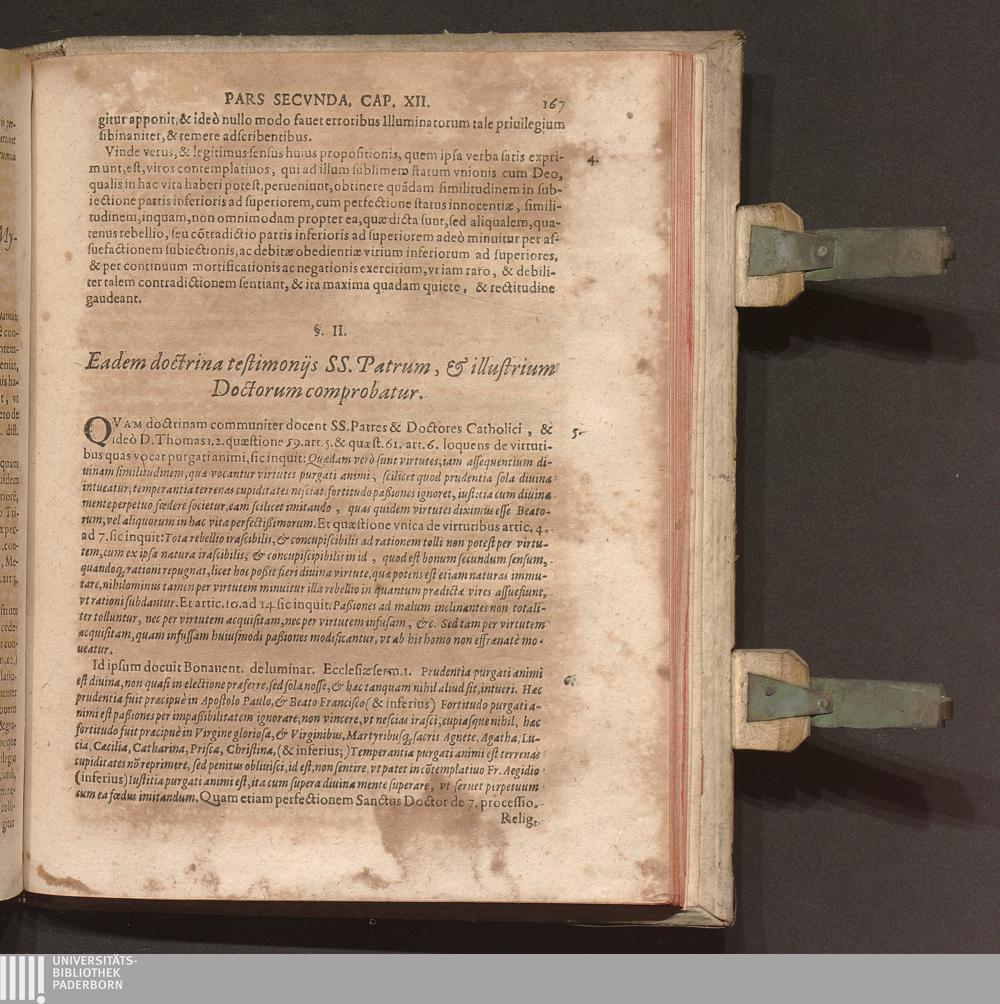 PARS SECVNDA, CAP. XII. 167
gitur apponit, & ideò nullo modo fauet erroribus Illuminatorum tale priuilegium
sibi naniter, & temere adscribentibus.
Vinde verus, & legitimus sensus huius propositionis, quem ipsa verba satis expri- 4.
munt, est, viros contemplatiuos, qui ad illum sublimem statum vnionis cum Deo,
qualis in hac vita haberi potest, perueniunt, obtinere quãdam similitudinem in sub-
iectione partis inferioris ad superiorem, cum perfectione status innocentiæ, simili-
tudinem, inquam, non omnimodam propter ea, quæ dicta sunt, sed aliqualem, qua-
tenus rebellio, seu cõtradictio partis inferioris ad superiorem adeò minuitur per as-
suefactionem subiectionis, ac debitæ obedientiæ virium inferiorum ad superiores,
& per continuum mortificationis ac negationis exercitium, vt iam raro, & debili-
ter talem contradictionem sentiant, & ita maxima quadam quiete, & rectitudine
gaudeant.
§. II.
Eadem doctrina testimonijs SS. Patrum, & illustrium
Doctorum comprobatur.
QVAM doctrinam communiter docent SS. Patres & Doctores Catholici, & 5.
ideò D. Thomas 1. 2. quæstione 59. art. 5. & quæst. 61. art. 6. loquens de virtuti-
bus quas vocat purgati animi, sic inquit: Quædam verò sunt virtutes, iam assequentium di-
uinam similitudinem, quæ vocantur virtutes purgati animi, scilicet quod prudentia sola diuina
intueatur, temperantia terrenas cupiditates nesciat, fortitudo passiones ignoret, iustitia cum diuina
mente perpetuo fœdere societur, eam scilicet imitando, quas quidem virtutes diximus esse Beato-
rum, vel aliquorum in hac vita perfectissimorum. Et quæstione vnica de virtutibus artic. 4.
ad 7. sic inquit: Tota rebellio irascibilis, & concupiscibilis ad rationem tolli non potest per virtu-
tem, cum ex ipsa natura irascibilis, & concupiscipibilis in id, quod est bonum secundum sensum,
quandoq; rationi repugnat, licet hoc possit fieri diuina virtute, quæ potens est etiam naturas immu-
tare, nihilominus tamen per virtutem minuitur illa rebellio in quantum prædictæ vires assuefiunt,
vt rationi subdantur. Et artic. 10. ad 14. sic inquit: Passiones ad malum inclinantes non totali-
ter tolluntur, nec per virtutem acquisitam, nec per virtutem infusam, &c. Sed tam per virtutem
acquisitam, quam infussam huiusmodi passiones modificantur, vt ab his homo non effrænatè mo-
ueatur.
Id ipsum docuit Bonauent. de luminar. Ecclesiæ serm. 1. Prudentia purgati animi
est diuina, non quasi in electione præferre, sed sola nosse, & hæc tanquam nihil aliud sit, intueri. Hæc 6.
prudentia fuit præcipuè in Apostolo Paulo, & Beato Francisco (& inferius) Fortitudo purgati a-
nimi est passiones per impassibilitatem ignorare, non vincere, vt nescias irasci, cupias que nihil, hæc
fortitudo fuit præcipuè in Virgine gloriosa, & Virginibus, Martyribusq; sacris Agnete, Agatha, Lu-
cia, Cæcilia, Catharina, Prisca, Christina, (& inferius;) Temperantia purgati animi est terrenas
cupiditates nõ reprimere, sed penitus obliuisci, id est, non sentire, vt patet in cõtemplatiuo Fr. Aegidio
(inferius) Iustitia purgati animi est, ita cum supera diuina mente superare, vt seruet perpetuum
cum ea fœdus imitandum. Quam etiam perfectionem Sanctus Doctor de 7. processio.
Relig.
UNIVERSITÄTS-
BIBLIOTHEK
PADERBORN